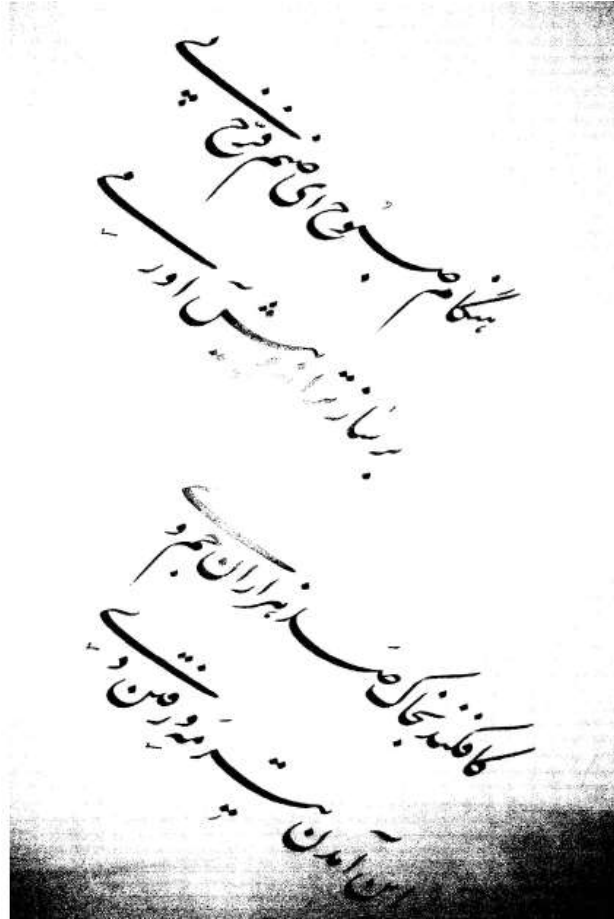 هنگام صبوح ای صنم فرخ پی
برساز ترانه و پیش آور می
کافکند بخاک صد هزاران جم و کی
این آمدن تیر مه و رفتن دی